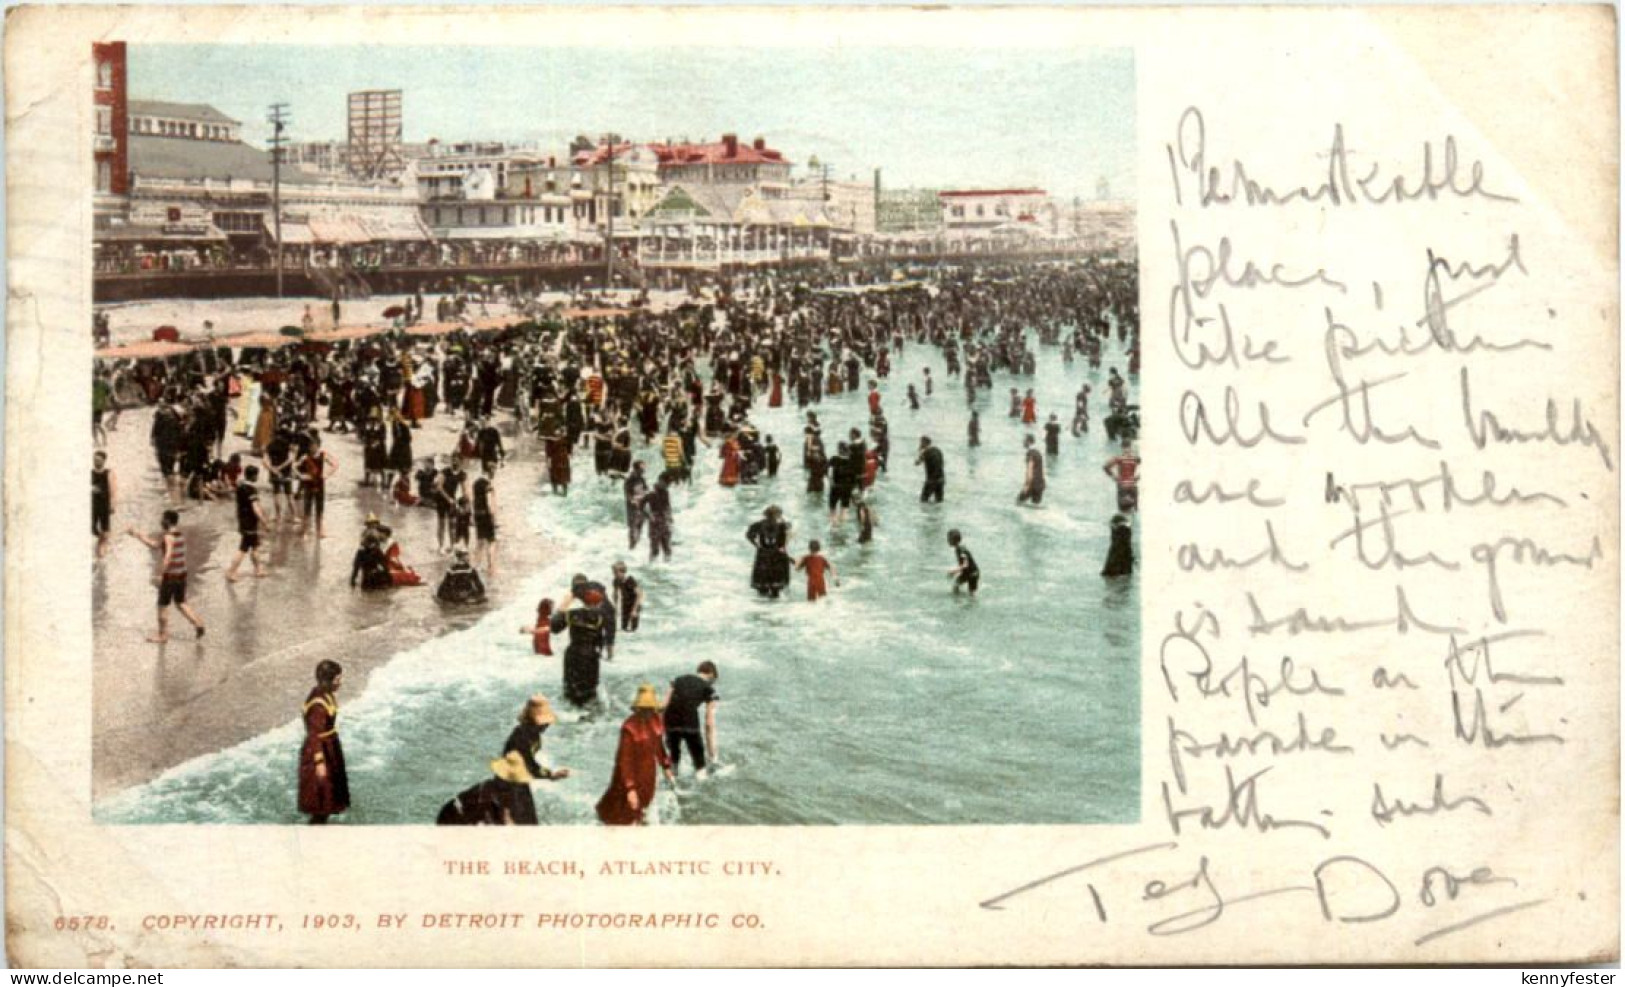 Remarkable
place, just
like picture
All the buildgs
are wooden.
and the ground
is sand.
People on the
parade in their
bathing suits.
Dove.
THE BEACH, ATLANTIC CITY.
6578. COPYRIGHT, 1903, BY DETROIT PHOTOGRAPHIC CO.
www.delcampe.net
kennyfester